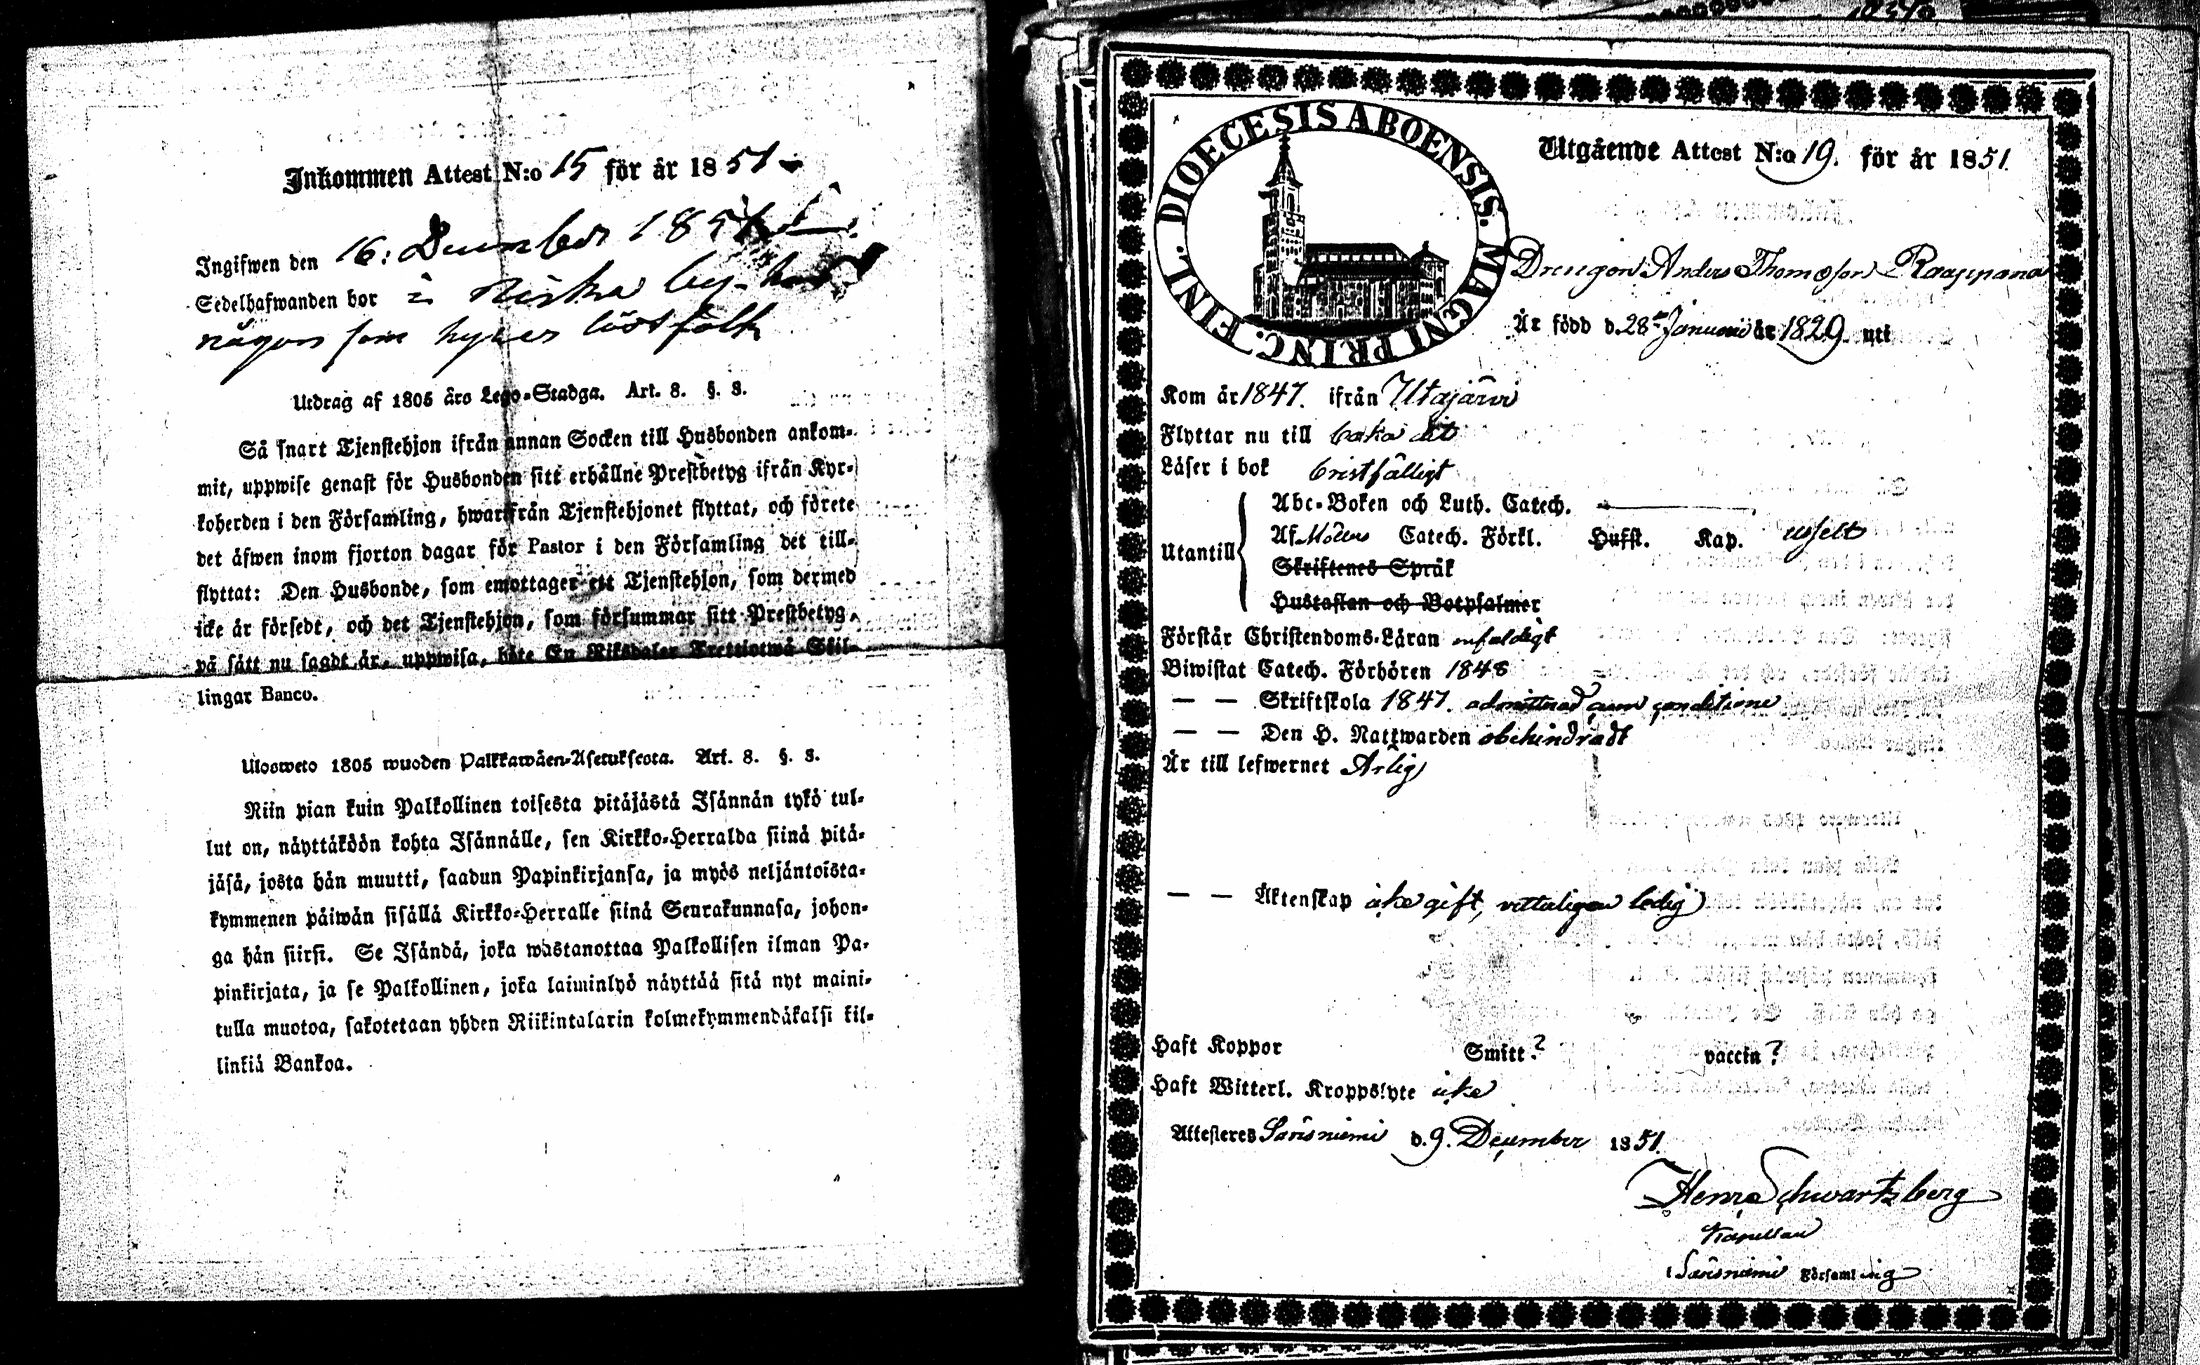 Inkommen Attest N:o 15 för år 1851
Ingifwen den 16: December 1851
Sedelhafwanden bor i Niska by hos
någon som hyser löst folk
Utdrag af 1805 års Lego-Stadga. Art. 8. §. 3.
Så snart Tjenstehjon ifrån annan Socken till Husbonden ankom-
mit, uppwise genast för Husbonden sitt erhållne Prestbetyg ifrån Kyr-
koherden i den Församling, hwarifrån Tjenstehjonet flyttat, och förete
det äfwen inom fjorton dagar för Pastor i den Församling det till-
flyttat: Den Husbonde, som emottager ett Tjenstehjon, som dermed
icke är försedt, och det Tjenstehjon, som försummar sitt Prestbetyg,
på sätt nu sagdt är, uppwisa, böte En Riksdaler Trettiotwå Skil-
lingar Banco.
Ulosweto 1805 wuoden Palkkawäen-Asetuksesta. Art. 8. §. 3.
Niin pian kuin Palkollinen toisesta pitäjästä Isännän tykö tul-
lut on, näyttäköön kohta Isännälle, sen Kirkko-Herralda siinä pitä-
jäsä, josta hän muutti, saadun Papinkirjansa, ja myös neljäntoista-
kymmenen päiwän sisällä Kirkko-Herralle siinä Seurakunnasa, johon-
ga hän siirsi. Se Isändä, joka wastanottaa Palkollisen ilman Pa-
pinkirjata, ja se Palkollinen, joka laiminlyö näyttää sitä nyt maini-
tulla muotoa, sakotetaan yhden Riikintalarin kolmekymmendäkaksi kil-
linkiä Bankoa.
DIOECESIS ABOENSIS. MAGNI PRINC. FINL.
Utgående Attest N:o 19. för år 1851.
Drengen Anders Thomasson Raappana
Är född d. 28de Januari år 1829. uti
Kom år 1847. ifrån Utajärvi
Flyttar nu till baka dit
Läser i bok bristfälligt
Utantill
Abc-Boken och Luth. Catech.
Af Möllers Catech. Förkl. Husst. Kap. uselt
Skriftenes Språk
Hustaflan och Botpsalmer
Förstår Christendoms-Läran enfaldigt
Biwistat Catech. Förhören 1848
— — Skriftskola 1847. admitterad cum conditione
— — Den H. Nattwarden obehindradt
Är till lefwernet Ärlig
— — Äktenskap icke gift, vitterligen ledig
Haft Koppor Smitt.? vaccin?
Haft Witterl. Kroppslyte icke
Attesteres Säräisniemi d. 9. December 1851.
Henr. Schwartzberg
Kapellan
i Säräisniemi Församling